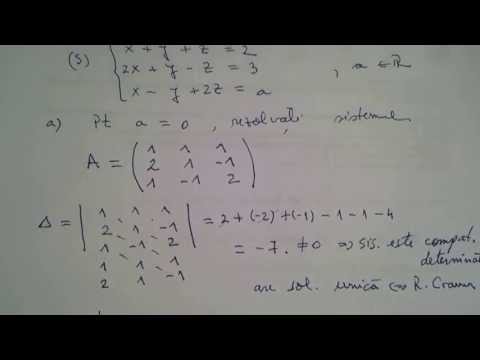 (S) { x + y + z = 2
2x + y - z = 3 , a ∈ ℝ
x - y + 2z = a
a) Pt a = 0 , rezolvati sistemul
A = ( 1 1 1
2 1 -1
1 -1 2 )
Δ = | 1 1 1
2 1 -1
1 -1 2 | = 2 + (-2) + (-1) - 1 - 1 - 4
1 1 1
2 1 -1
= -7 . ≠ 0 ⇒ sis. este compat.
determinat
are sol. unică ⇔ R. Cramer